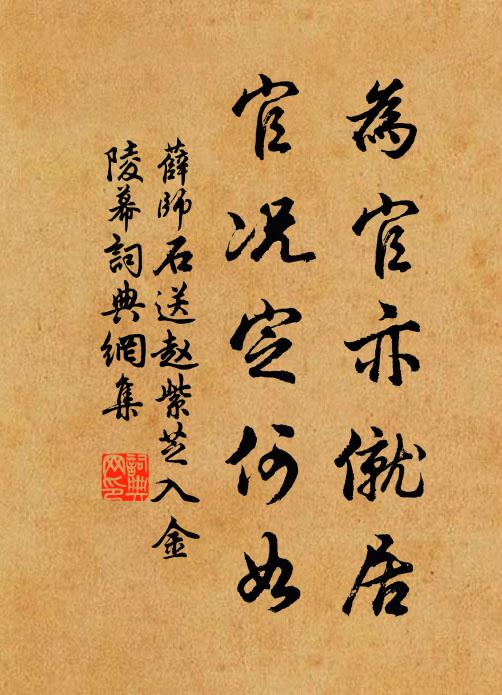 為官亦僦居
官况定何如
薛師石送趙紫芝入金
陵幕詞典網集
詞典网印